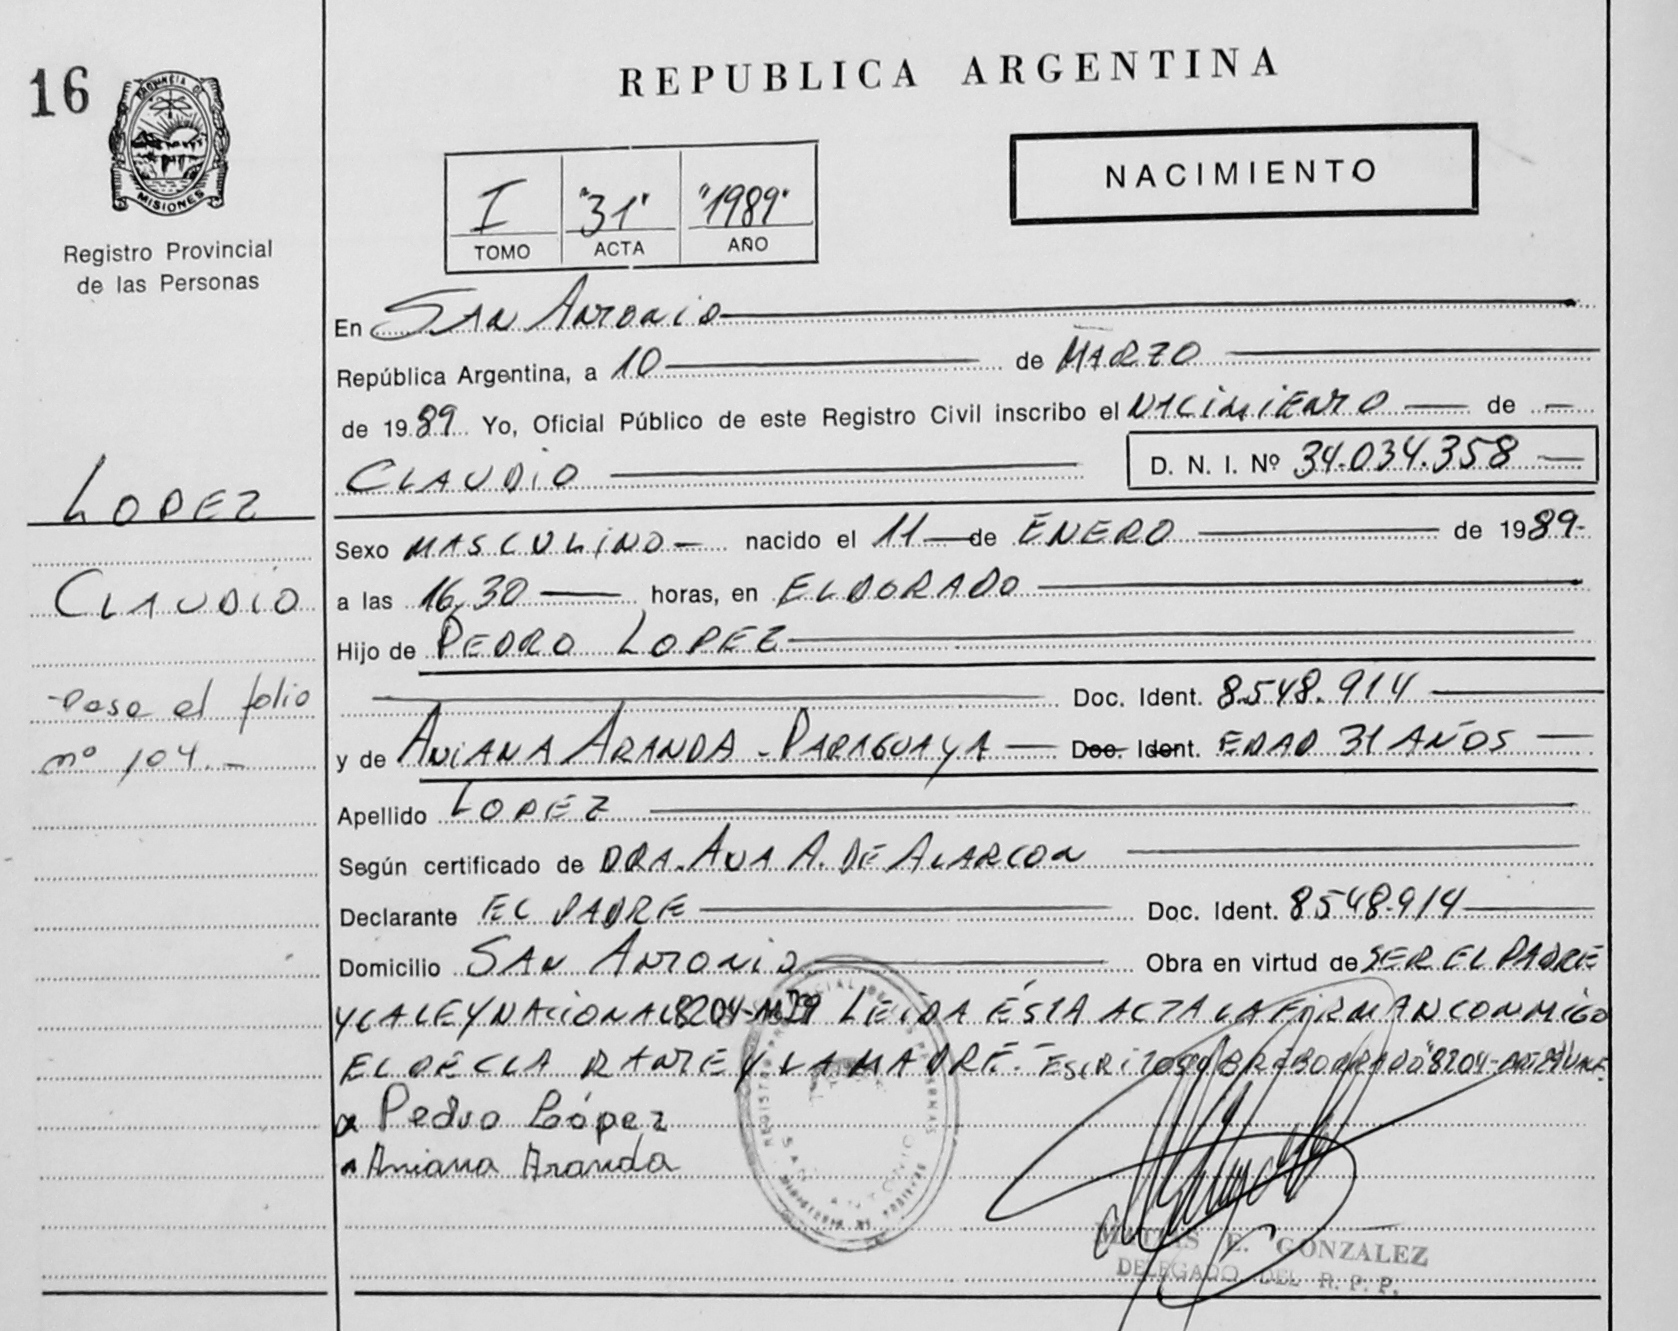 16
PROVINCIA DE
MISIONES
Registro Provincial
de las Personas
REPUBLICA ARGENTINA
NACIMIENTO
I "31" "1989"
TOMO ACTA AÑO
En SAN ANTONIO
República Argentina, a 10 de MARZO
de 1989 Yo, Oficial Público de este Registro Civil inscribo el NACIMIENTO de
CLAUDIO D. N. I. Nº 34.034.358
LOPEZ
Sexo MASCULINO nacido el 11 de ENERO de 1989
CLAUDIO
a las 16,30 horas, en ELDORADO
Hijo de PEDRO LOPEZ
Pasa al folio
nº 104.-
Doc. Ident. 8.548.914
y de ANIANA ARANDA - PARAGUAYA Doc. Ident. EDAD 31 AÑOS
Apellido LOPEZ
Según certificado de DRA. ANA A. DE ALARCON
Declarante EL PADRE Doc. Ident. 8548.914
Domicilio SAN ANTONIO Obra en virtud de SER EL PADRE
Y LA LEY NACIONAL 8204- LEIDA ÉSTA ACTA LA FIRMAN CONMIGO
EL DECLARANTE Y LA MADRE.- ESCRITO SOBRE BORRADO "8204-
x Pedro López
Aniana Aranda
SAN ANTONIO
MATIAS E. GONZALEZ
DELEGADO DEL R. P. P.